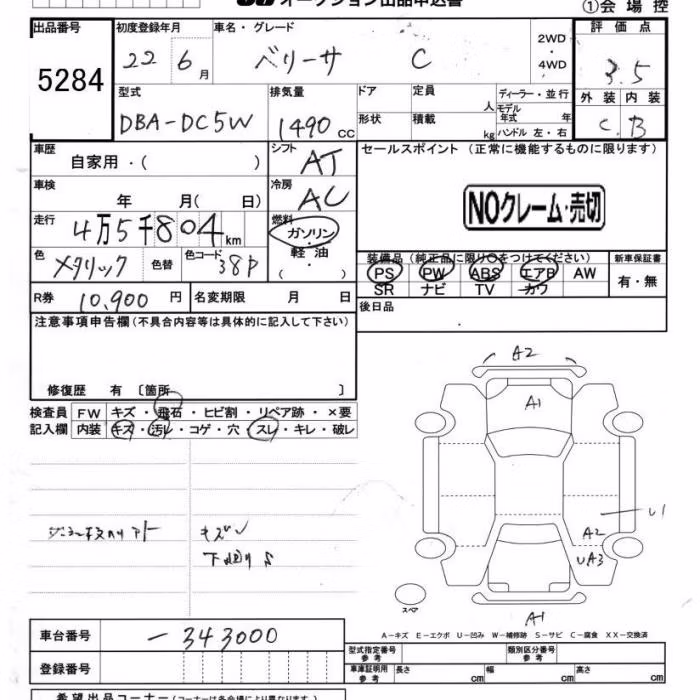 オークション出品申込書
①会場控
出品番号 初度登録年月 車名・グレード 評価点
5284 22 6月 ベリーサ C 2WD・4WD 3.5
型式 排気量 ドア 定員 人 ディーラー・並行 外装 内装
DBA-DC5W 1490 cc 形状 積載 kg モデル年式 年 C B
ハンドル 左・右
車歴 シフト セールスポイント (正常に機能するものに限ります)
自家用・( ) AT
車検 冷房
年 月( 日) AC
NOクレーム・売切
走行 燃料
4万5千804km ガソリン・軽油・( )
色 メタリック 色替 色コード 38P
装備品 (純正品に限り○をつけてください) 新車保証書
PS PW ABS エアB AW 有・無
SR ナビ TV カワ
R券 10,900円 名変期限 月 日 後日品
注意事項申告欄(不具合内容等は具体的に記入して下さい)
修復歴 有 〔箇所 〕
検査員 FW キズ・飛石・ヒビ割・リペア跡・×要
記入欄 内装 キズ・汚レ・コゲ・穴・スレ・キレ・破レ
A2
A1
U1
A2
UA3
キズ
下廻りS
スペア
A1
A-キズ E-エクボ U-凹み W-補修跡 S-サビ C-腐食 XX-交換済
車台番号 -343000
型式指定番号 参考 類別区分番号 参考
登録番号
車庫証明用 参考 長さ cm 幅 cm 高さ cm
希望出品コーナー(コーナーは各会場により異なります。